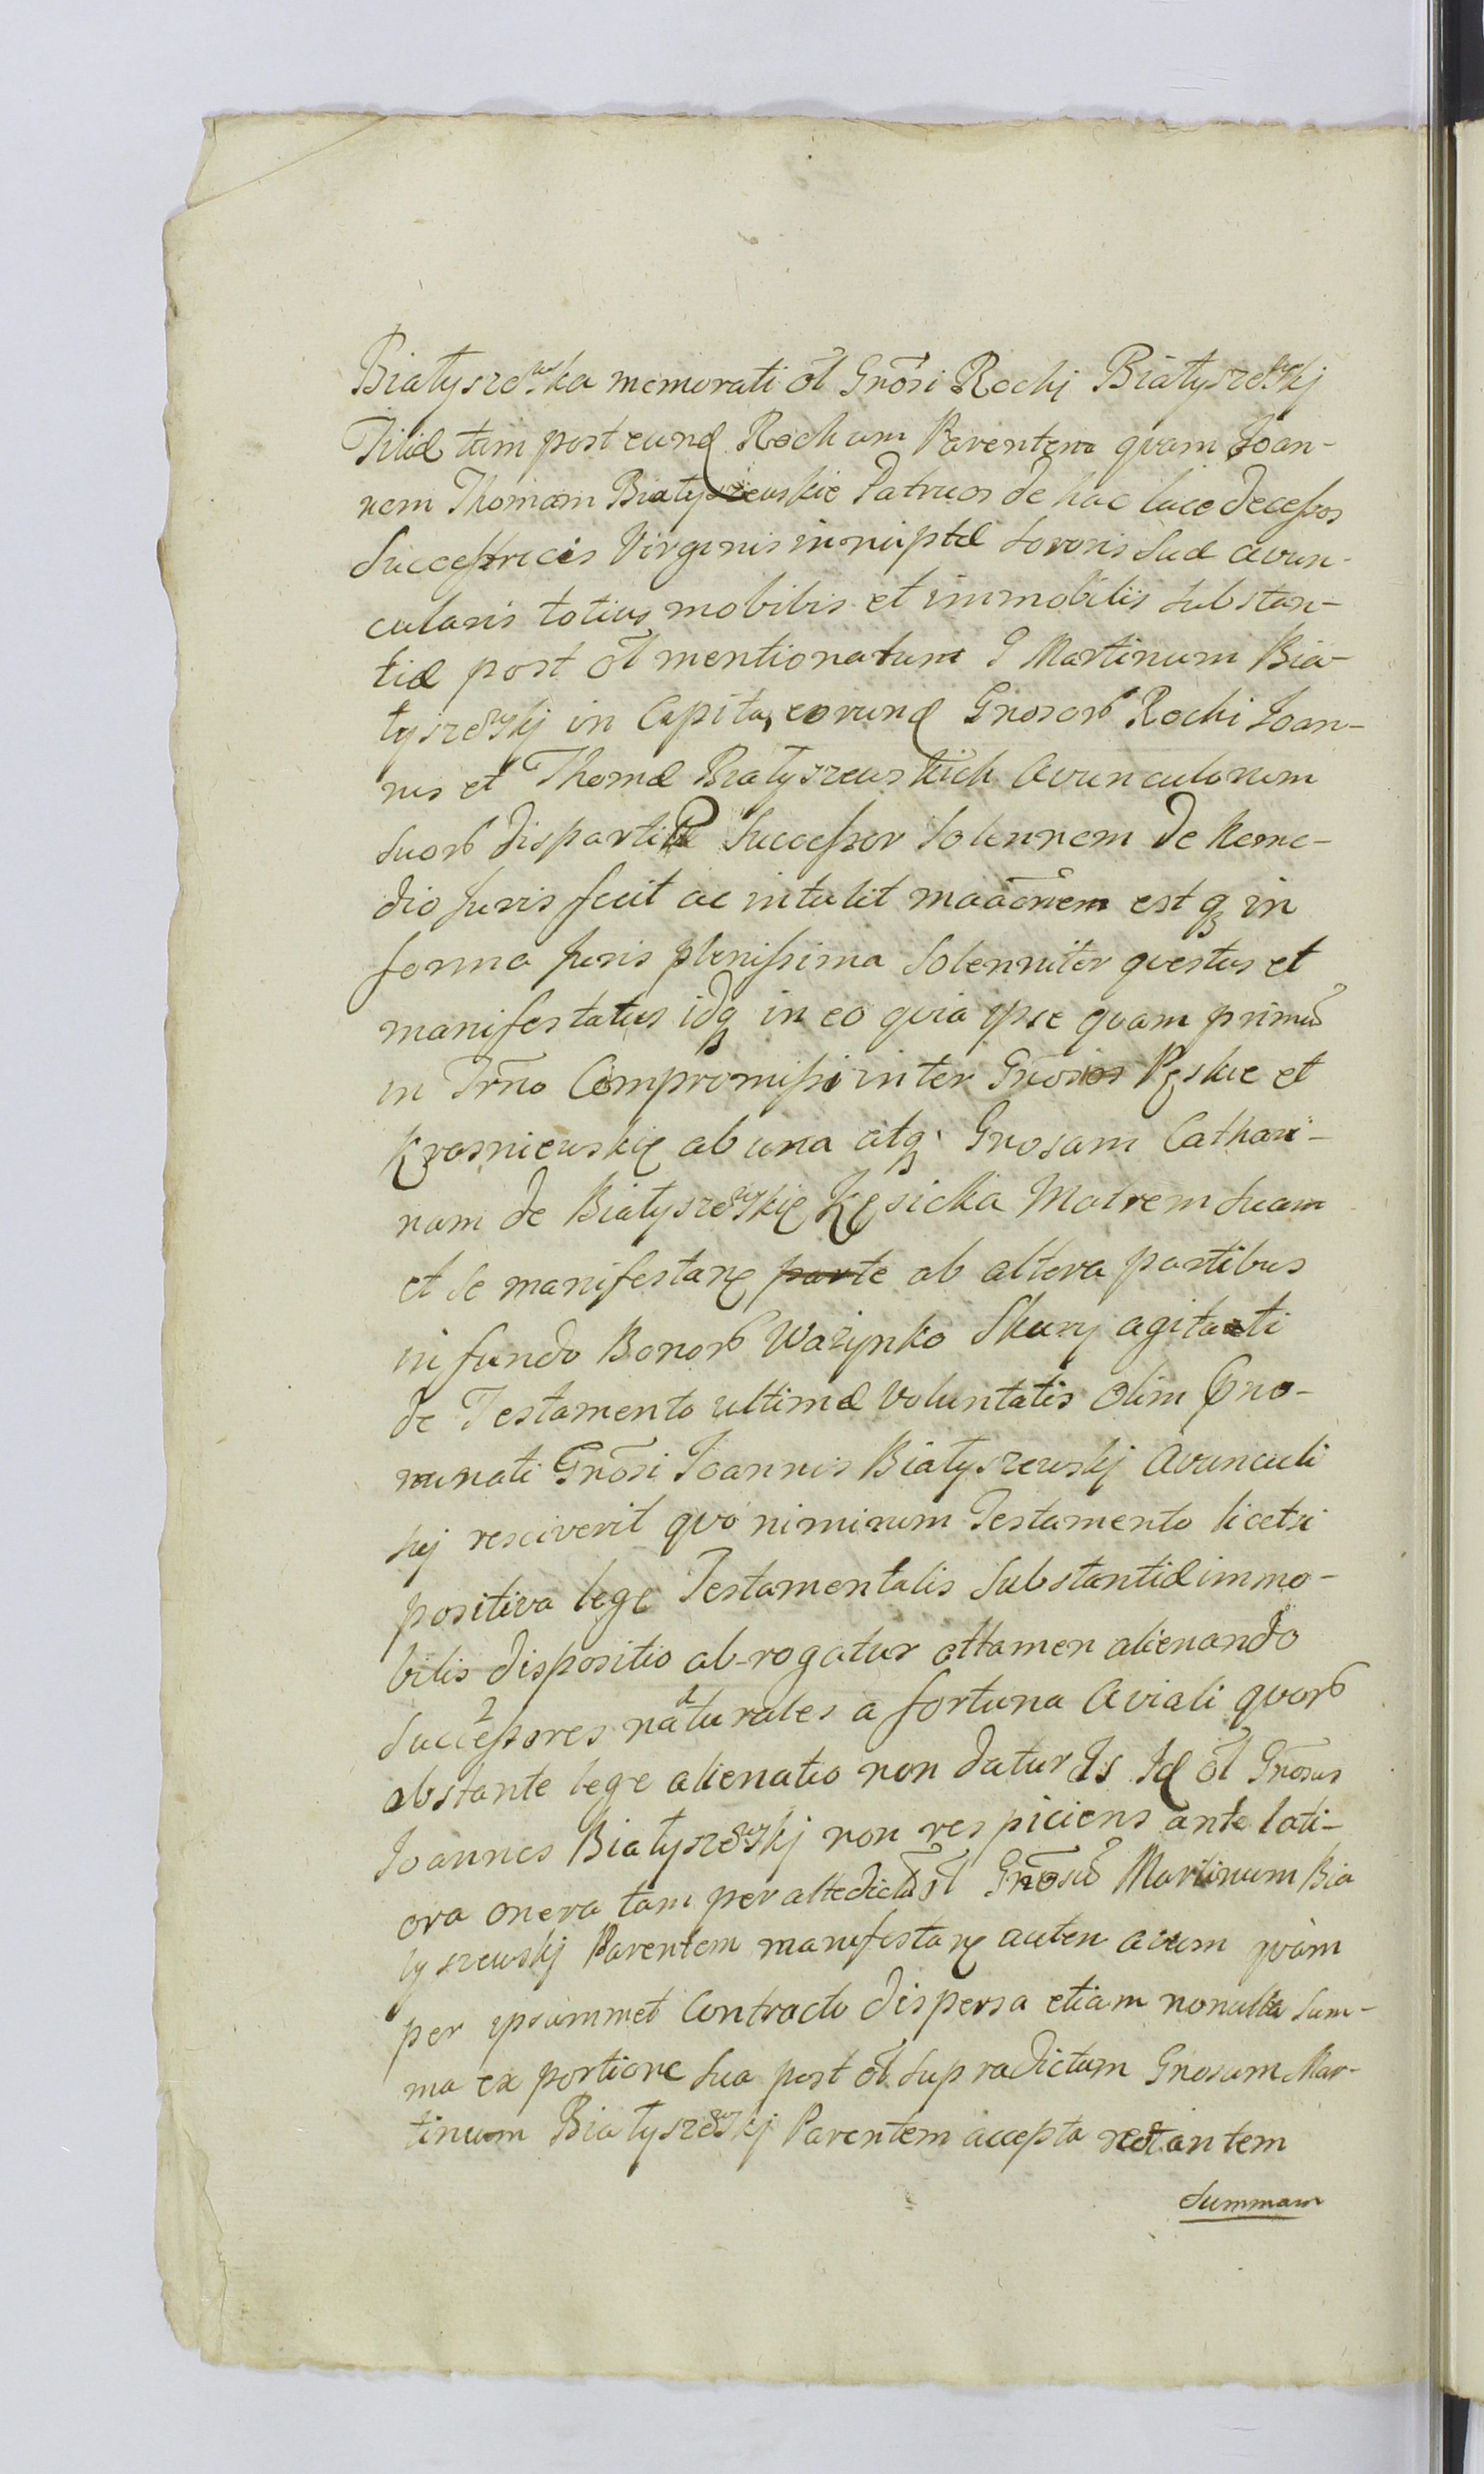 Białyszewska memorati ol Gnosi Rochj Białyszewskj
Filiæ tam post eund Rochum Parentem quam Joan-
nem Thomam Białyszewskie Patruos de hac luce decessos
Successricis Virginis innuptæ Sororis Suæ avun-
cularis totius mobilis et immobilis Substan-
tiæ post ol mentionatum G Martinum Bia-
łyszewskj in Capita, eorund Gnosorb Rochi Joan-
nis et Thomæ Białyszewskich Avunculorum
Suorb dispartitæ Successor Solennem de Reme-
dio Juris fecit ac intulit maaonem estq in
forma Juris plenissima Solenniter questus et
manifestatus idq in eo quia ipse quam primu
in Trno Compromissi inter Gnosos Pęskie et
Krasniewskie ab una atq Gnosam Cathari-
nam de Białyszewskie Kęsicka Matrem Suam
et Se manifestane parte ab altera partibus
in fundo Bonorb Ważynko Skury agitati
de Testamento ultimæ Voluntatis Olim Gno-
minati Gnosi Joannis Białyszewskj Avunculi
Suj resciverit quo nimirum Testamento licetsi
positiva lege Testamentalis Substantiæ immo-
bilis dispositio ab-rogatur attamen alienando
Successores naturales a fortuna Aviali quorb
obstante lege alienatio non datur Is Id ol Gnosus
Joannes Białyszewskj non respiciens antelati-
ora onera tam per altedictu ol Gnosu Martinum Bia
łyszewskj Parentem manifestane autem avum quàm
per ipsummet Contracto dispersa etiam nonulla Sum-
ma ex portione Sua post ol Supradictum Gnosum Mar-
tinum Białyszewskj Parentem accepta restantem
Summam